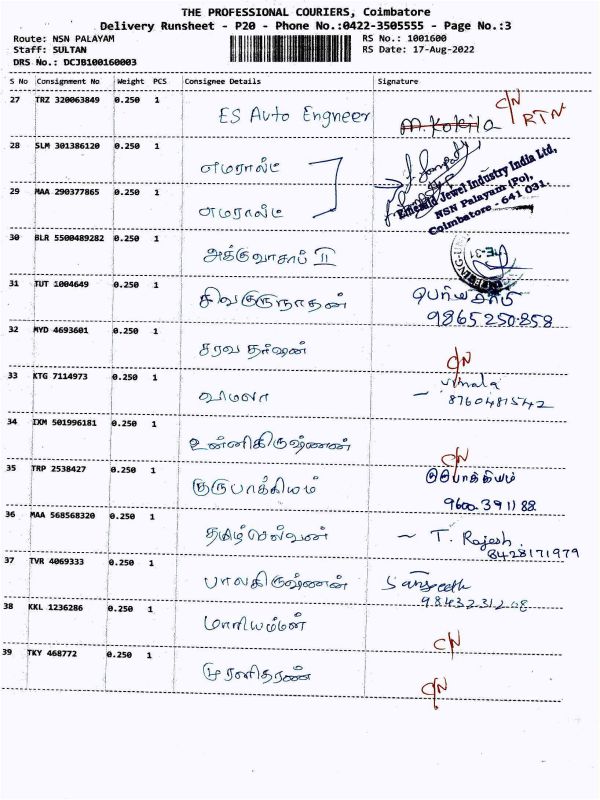 THE PROFESSIONAL COURIERS, Coimbatore
Delivery Runsheet - P20 - Phone No.:0422-3505555 - Page No.:3
Route: NSN PALAYAM RS No.: 1001600
Staff: SULTAN RS Date: 17-Aug-2022
DRS No.: DCJB100160003
S No Consignment No Weight PCS Consignee Details Signature
27 TRZ 320063849 0.250 1 ES Auto Engneer M.Kokila C/N RTN
28 SLM 301386120 0.250 1 எமரால்ட்
Emerald Jewel Industry India Ltd,
NSN Palayam (Po),
Coimbatore - 641 031.
29 MAA 290377865 0.250 1 எமரால்ட்
30 BLR 5500489282 0.250 1 அக்குவாசாப் II
31 TUT 1004649 0.250 1 சிவகுருநாதன்
9865250858
32 MYD 4693601 0.250 1 சரவ தர்ஷன் C/N
33 KTG 7114973 0.250 1 விமலா vimala
8760481542
34 IXM 501996181 0.250 1 உன்னிகிருஷ்ணன் C/N
35 TRP 2538427 0.250 1 குருபாக்கியம்
9600391188
36 MAA 568568320 0.250 1 தமிழ்செல்வன் T. Rajesh
8428171979
37 TVR 4069333 0.250 1 பாலகிருஷ்ணன் Sangeeth
9843231208
38 KKL 1236286 0.250 1 மாரியம்மன் C/N
39 TKY 468772 0.250 1 முரளிதரண் C/N